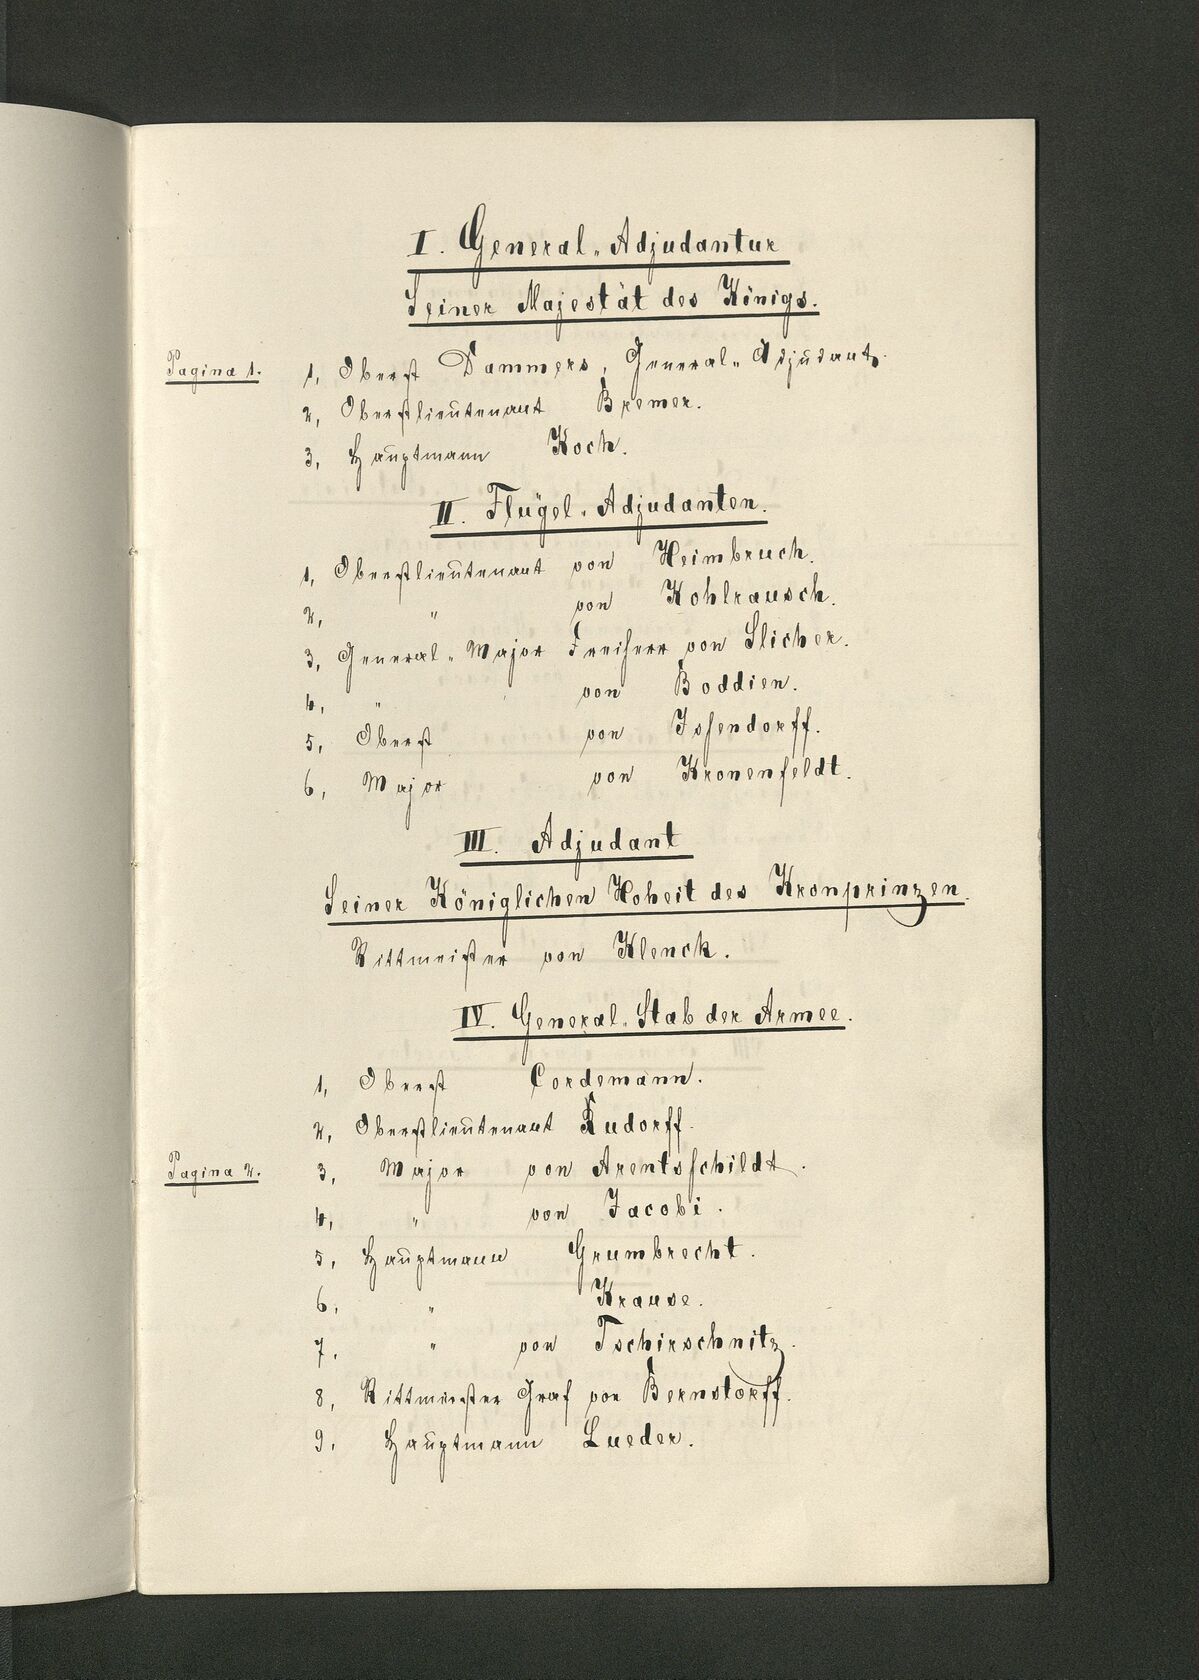 I. General-Adjudantur
Seiner Majestät des Königs.
Pagina 1. 1, Oberst Dammers, General-Adjudant.
2, Oberstlieutenant Bremer.
3, Hauptmann Koch.
II. Flügel-Adjudanten.
1, Oberstlieutenant von Heimbruch.
2, " von Kohlrausch.
3, General-Major Freiherr von Slicher.
4, " von Boddien.
5, Oberst von Issendorff.
6, Major von Kronenfeldt.
III. Adjudant
Seiner Königlichen Hoheit des Kronprinzen.
Rittmeister von Klenck.
IV. General-Stab der Armee.
1, Oberst Cordemann.
2, Oberstlieutenant Rudorff.
Pagina 2. 3, Major von Arentsschildt.
4, " von Jacobi.
5, Hauptmann Grumbrecht.
6. " Krause.
7. " von Tschirschnitz.
8, Rittmeister Graf von Bernstorff.
9. Hauptmann Lueder.